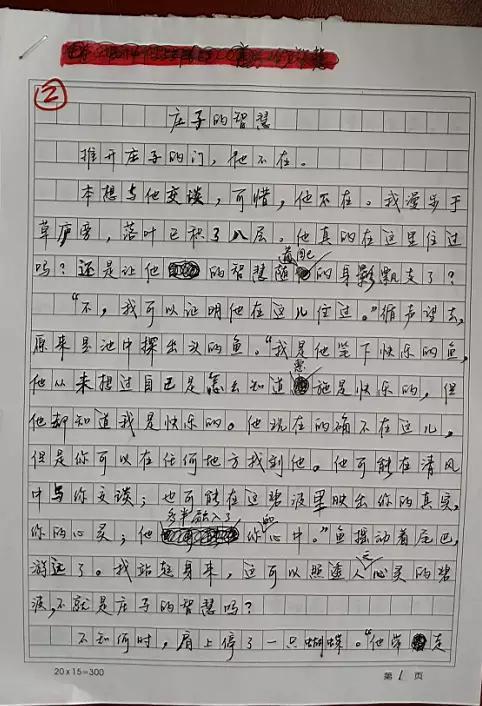 ②
庄子的智慧
推开庄子的门，他不在。
本想与他交谈，可惜，他不在。我漫步于
草庐旁，落叶已积了八层。他真的在这里住过
道自己
吗？还是让他的智慧随的身影飘走了？
“不，我可以证明他在这儿住过。”循声望去，
原来是池中探出头的鱼。“我是他笔下快乐的鱼，
他从来想过自己是怎么知道是快乐的，但
他却知道我是快乐的。他现在的确不在这儿，
但是你可以在任何地方找到他。他可能在清风
中与你交谈；也可能在这碧波里映出你的真实，
多半融入了
你的心灵；他你心中。”鱼摆动着尾巴，
游远了。我站起身来，这可以照透人心灵的碧
波，不就是庄子的智慧吗？
不知何时，肩上停了一只蝴蝶。“他带走
20×15=300
第1页